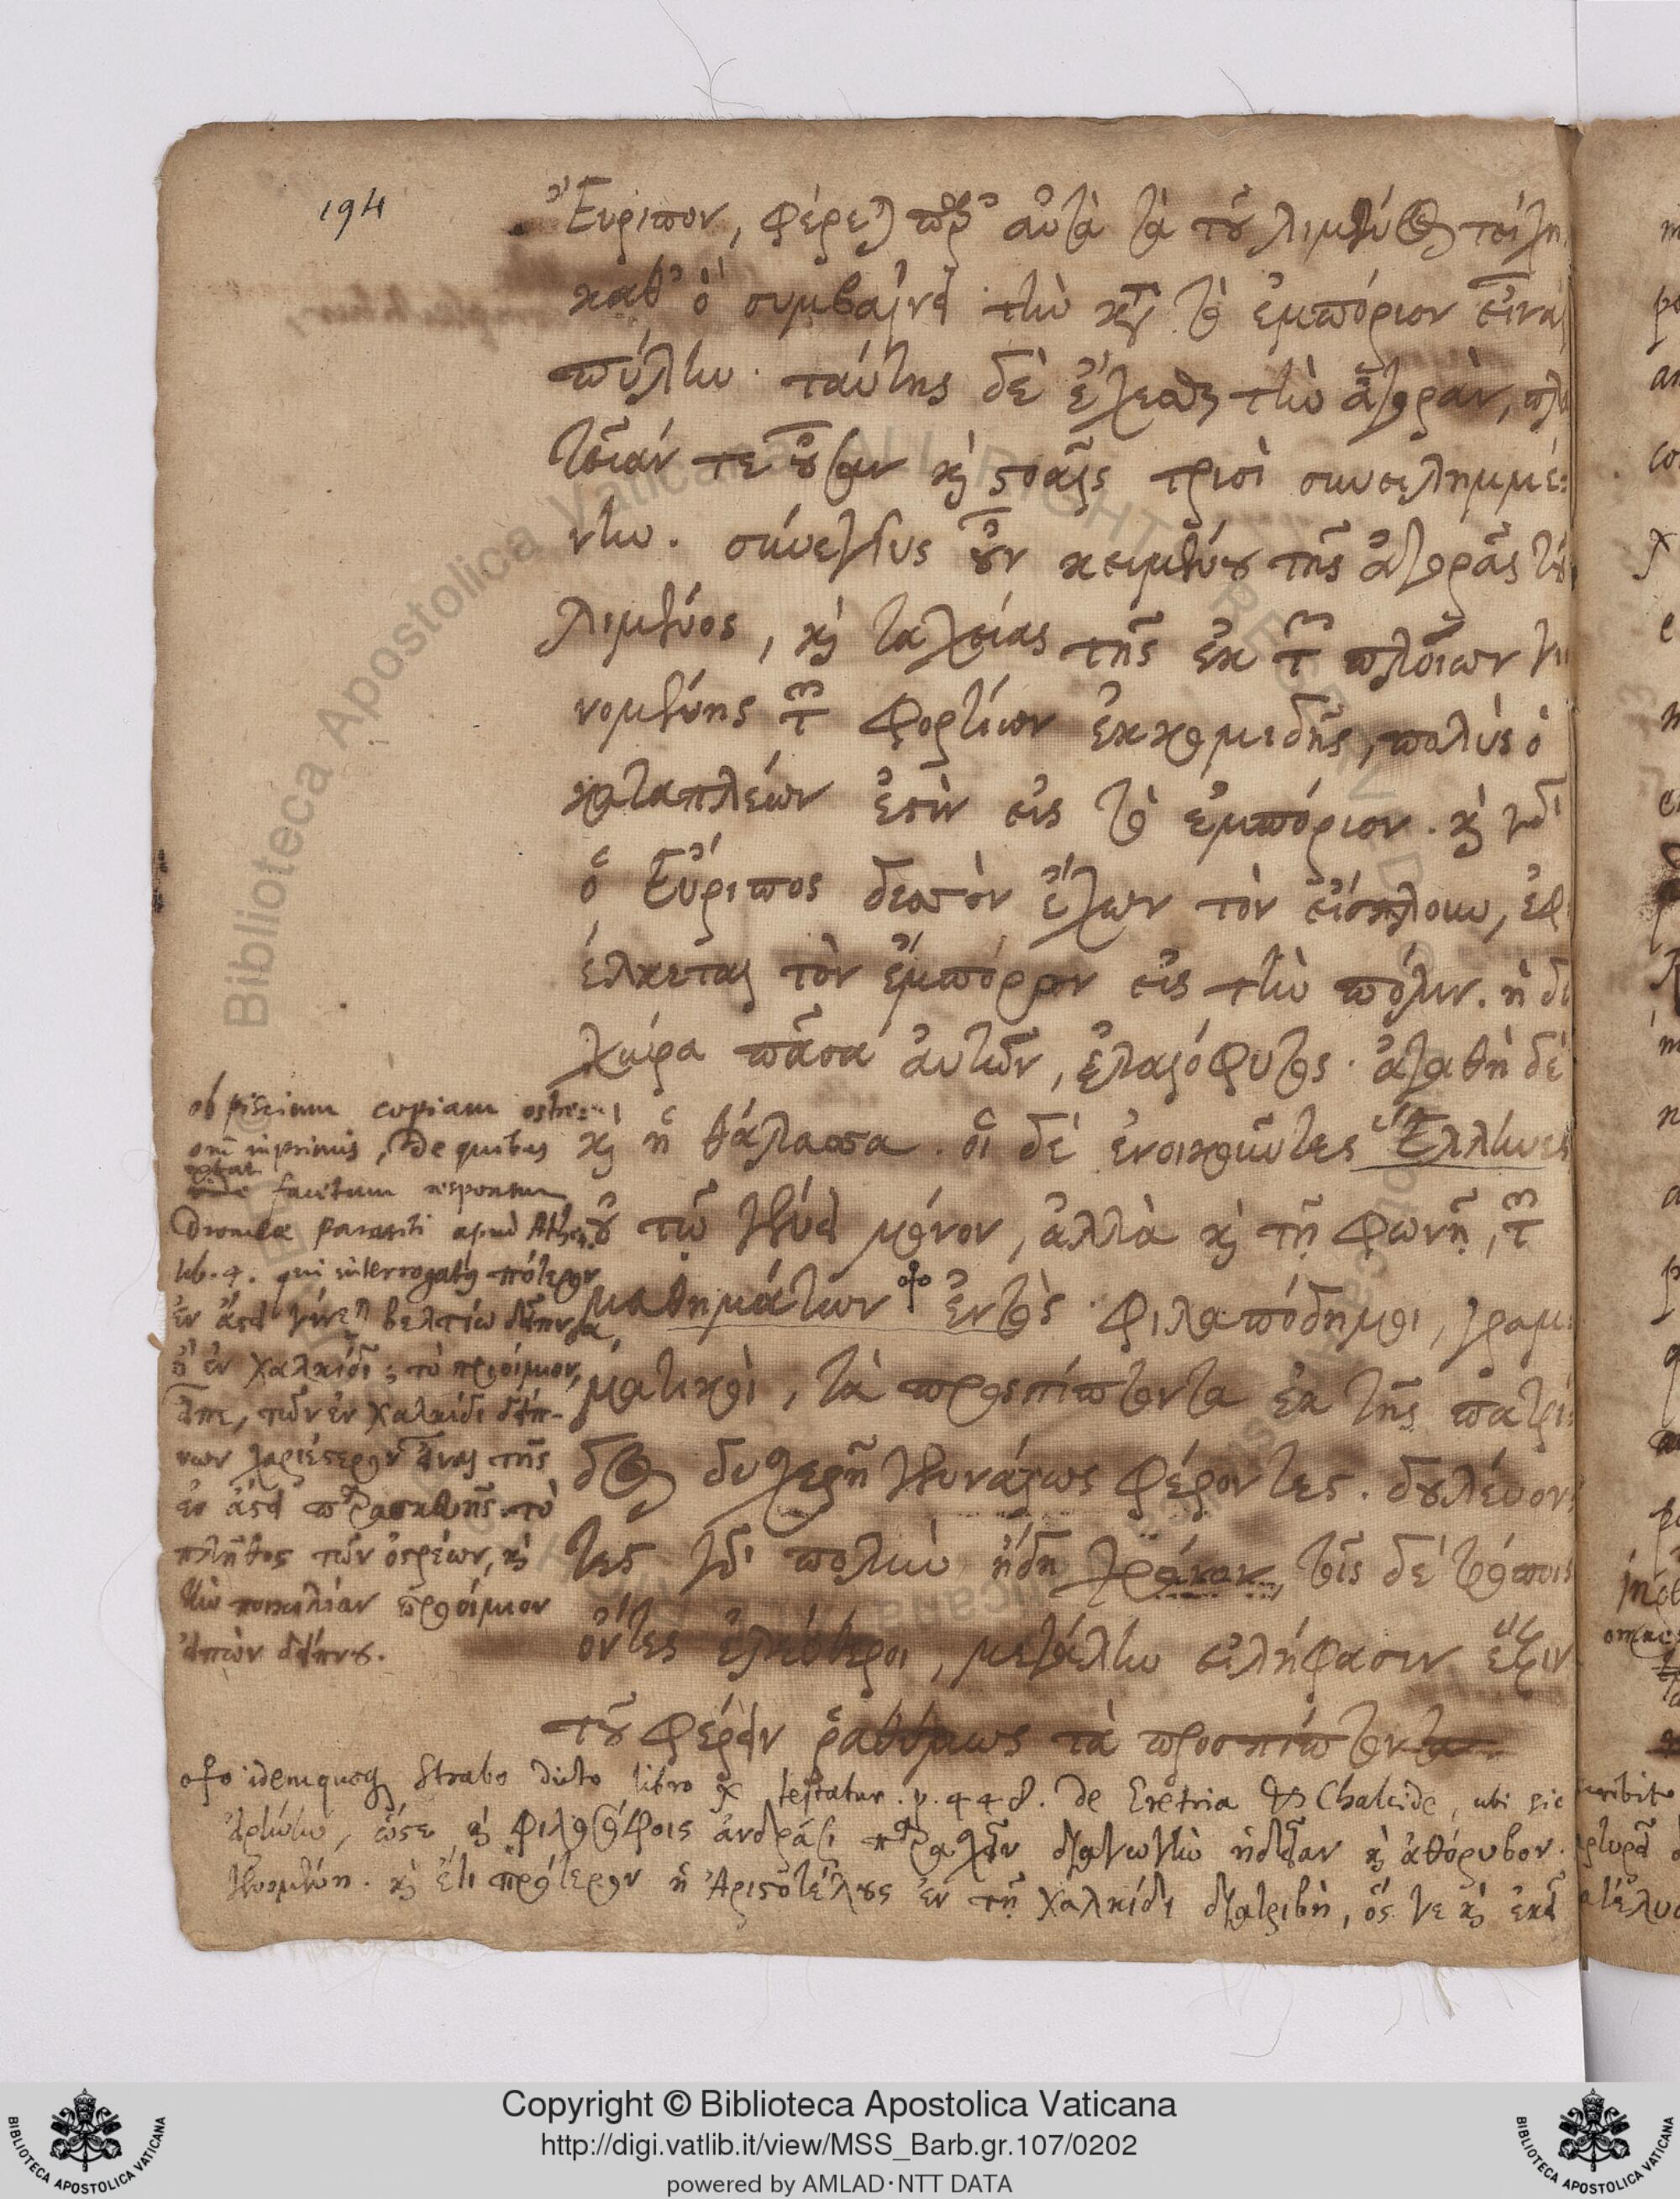 194
Εὔριπον, φέρεται παρ' αὐτὰ τὰ τοῦ λιμένος τείχη,
καθ' ὃ συμβαίνει τὴν κατὰ τὸ ἐμπόριον εἶναι
πύλην. ταύτης δὲ ἔχεσθαι τὴν ἀγορὰν, πλα
τεῖάν τε οὖσαν καὶ στοαῖς τρισὶ συνειλημμέ-
νην. σύνεγγυς οὖν κειμένου τῆς ἀγορᾶς τοῦ
λιμένος, καὶ ταχείας τῆς ἐκ τῶν πλοίων γι
νομένης τῶν φορτίων ἐκκομιδῆς, πολὺς ὁ
καταπλέων ἐστὶν εἰς τὸ ἐμπόριον. καὶ γὰρ
ὁ Εὔριπος δισσὸν ἔχων τὸν εἴσπλουν, ἐφ
έλκεται τὸν ἔμπορον εἰς τὴν πόλιν. ἡ δὲ
χώρα πᾶσα αὐτῶν, ἐλαιόφυτος. ἀγαθὴ δὲ
καὶ ἡ θάλασσα. οἱ δὲ ἐνοικοῦντες Ἕλληνες
οὐ τῷ γένει μόνον, ἀλλὰ καὶ τῇ φωνῇ, τῶν
μαθημάτων ἐντὸς. φιλαπόδημοι, γραμ-
ματικοὶ, τὰ προσπίπτοντα ἐκ τῆς πατρί-
δος δυσχερῆ γενναίως φέροντες. δουλεύον-
τες γὰρ πολὺν ἤδη χρόνον, τοῖς δὲ τρόποις
ὄντες ἐλεύθεροι, μεγάλην εἰλήφασιν ἕξιν
τοῦ φέρειν ῥαθύμως τὰ προσπίπτοντα.
ob piscium copiam ostre-
orum inprimis, de quibus
extat facetum responsum
Dromeae parasiti apud Athen.
lib. 4. qui interrogatus πότερον
ἐν ἄστει γίνεται βελτίω δεῖπνα,
ἢ ἐν Χαλκίδι; τὸ προοίμιον,
εἶπε, τῶν ἐν Χαλκίδι δείπ-
νων χαριέστερον εἶναι τῆς
ἐν ἄστει παρασκευῆς. τὸ
πλῆθος τῶν ὀστρέων, καὶ
τὴν ποικιλίαν προοίμιον
εἰπὼν δείπνου.
idemque Strabo dicto libro X testatur. p. 448. de Eretria & Chalcide, ubi sic
ἀρίστην, ὥστε καὶ φιλοσόφοις ἀνδράσι παρασχεῖν διαγωγὴν ἡδεῖαν καὶ ἀθόρυβον.
γενομένη. καὶ ἔτι πρότερον ἡ Ἀριστοτέλους ἐν τῇ Χαλκίδι διατριβὴ, ὅς γε καὶ ἐκεῖ
Copyright © Biblioteca Apostolica Vaticana
http://digi.vatlib.it/view/MSS_Barb.gr.107/0202
powered by AMLAD·NTT DATA